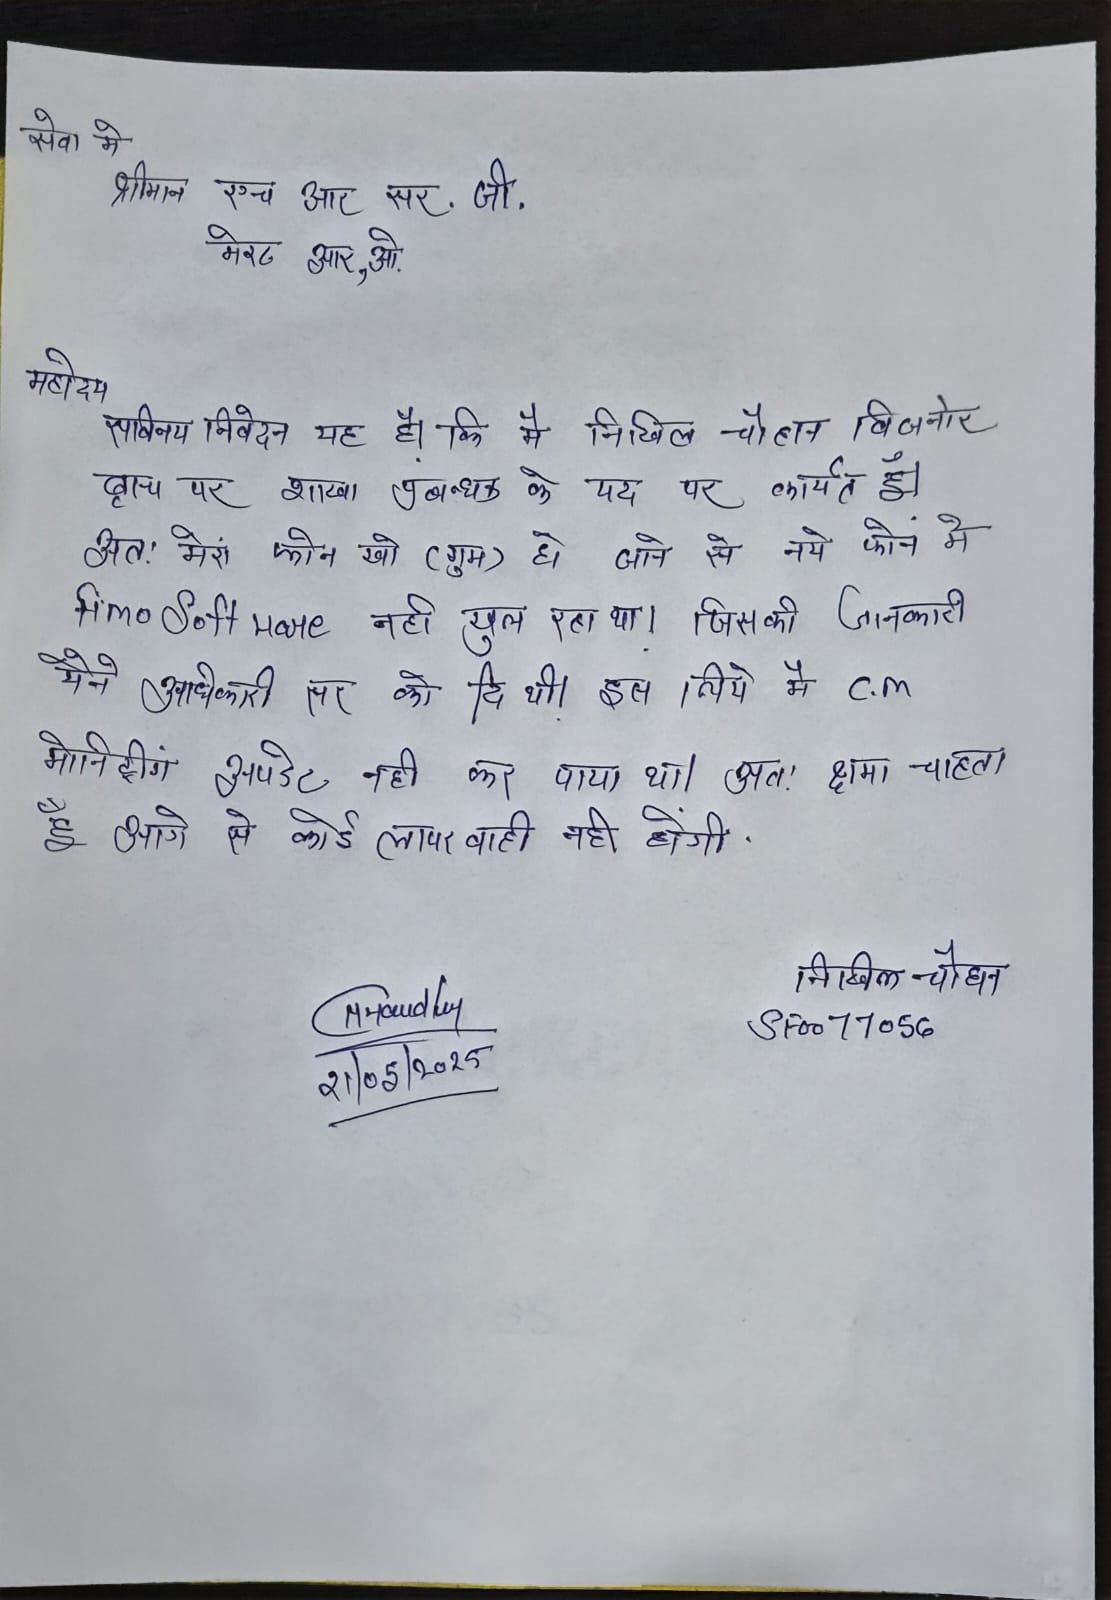 सेवा मे
श्रीमान एच आर सर. जी.
मेरठ आर,ओ.
महोदय
सविनय निवेदन यह है। कि मै निखिल चौहान बिजनोर
ब्रांच पर शाखा प्रबन्धक के पद पर कार्यत हूँ।
अतः मेरा फोन खो (गुम) हो जाने से नये फोन मे
Fimo Software नही खुल रहा था। जिसकी जानकारी
मैने अधिकारी सर को दि थी। इस लिये मै C.M
मोनिट्रींग अपडेट नही कर पाया था। अतः क्षमा चाहता
हूँ आगे से कोई लापरवाही नही होंगी.
निखिल चौहान
SF0077056
21/05/2025